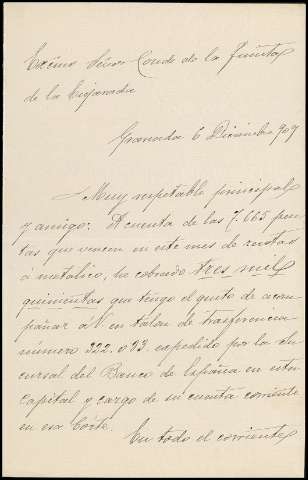 Excmo Señor Conde de la Puente
de la
Granada 6 Diciembre 909
Muy respetable principal
y amigo: A cuenta de las 7.665 pese
tas que vencen en este mes de rentas
á metalico, he cobrado tres mil
quinientas que tengo el gusto de acom
pañar á V. en talon de trasferencia
número 322.093 expedido por la Su
cursal del Banco de España en esta
Capital y cargo de mi cuenta corriente
en esa Córte.
En todo el corriente